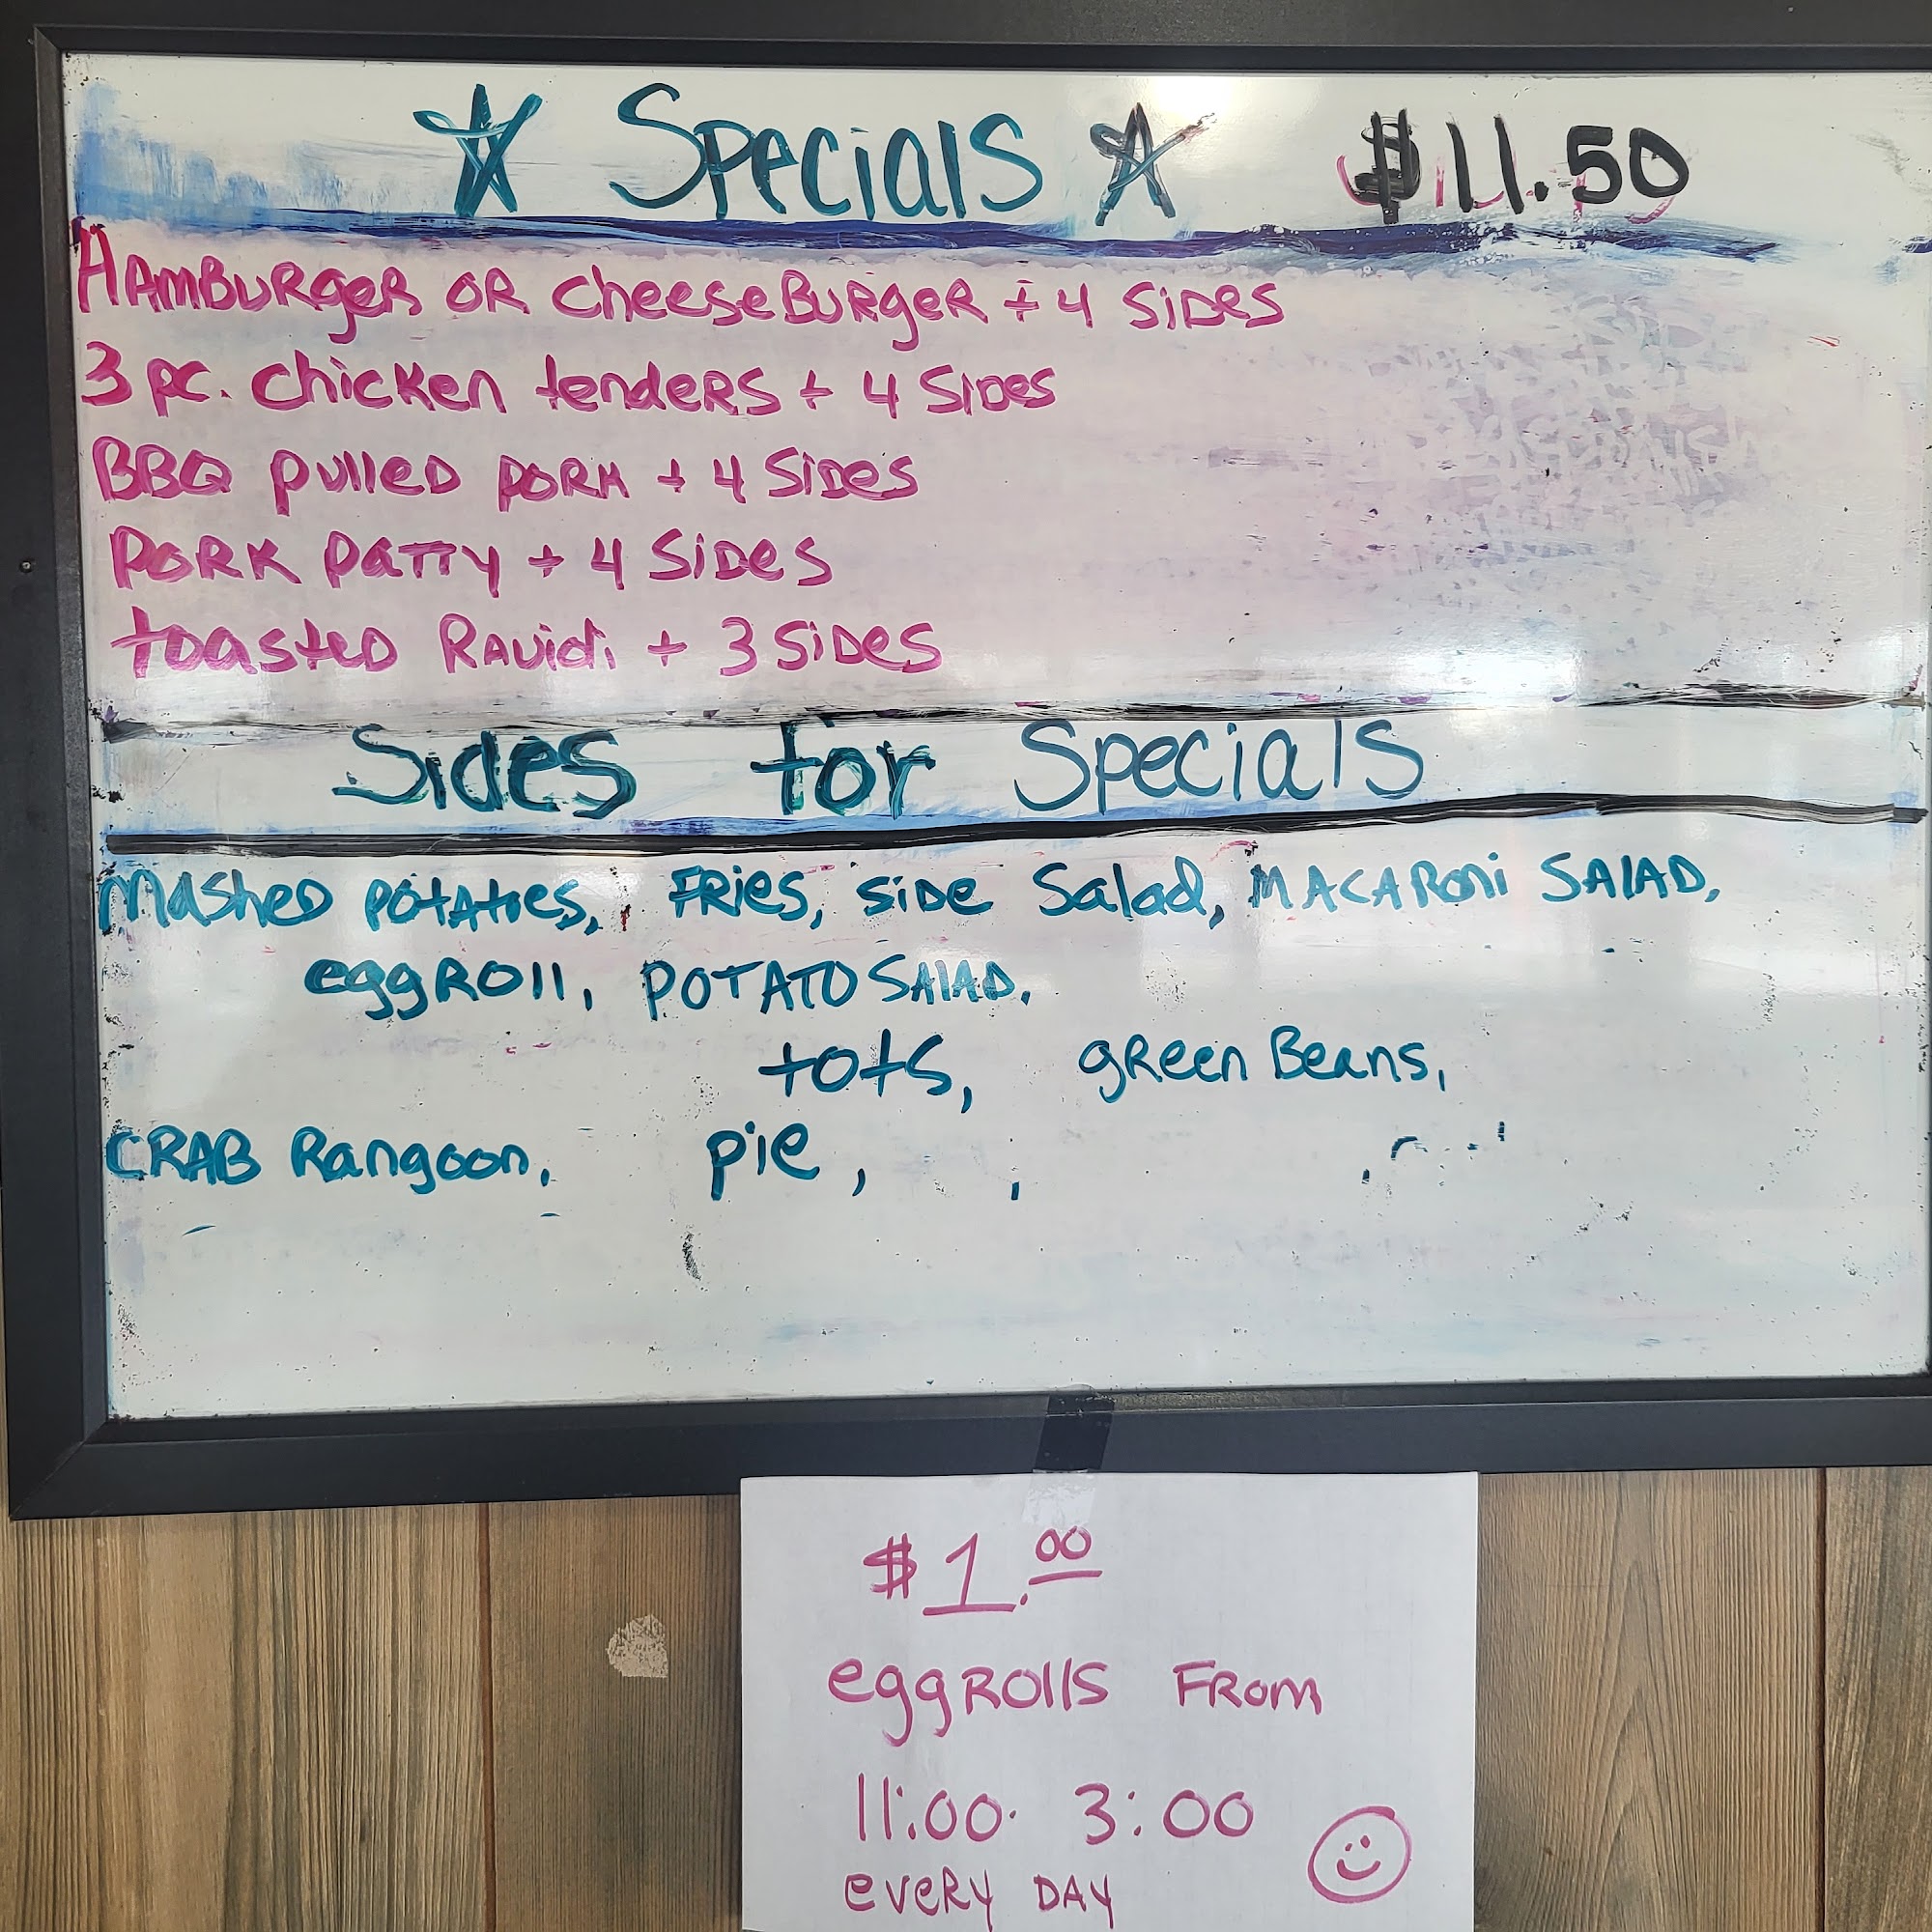 Specials $11.50
Hamburger or Cheeseburger + 4 Sides
3 pc. Chicken tenders + 4 Sides
BBQ pulled pork + 4 Sides
Pork Patty + 4 Sides
toasted Ravioli + 3 Sides
Sides for Specials
Mashed potatoes, Fries, side Salad, MACARoni SALAD,
eggRoll, POTATO SALAD,
tots, green Beans,
CRAB Rangoon, pie, , ,
$1.00
eggRolls From
11:00- 3:00
every DAY